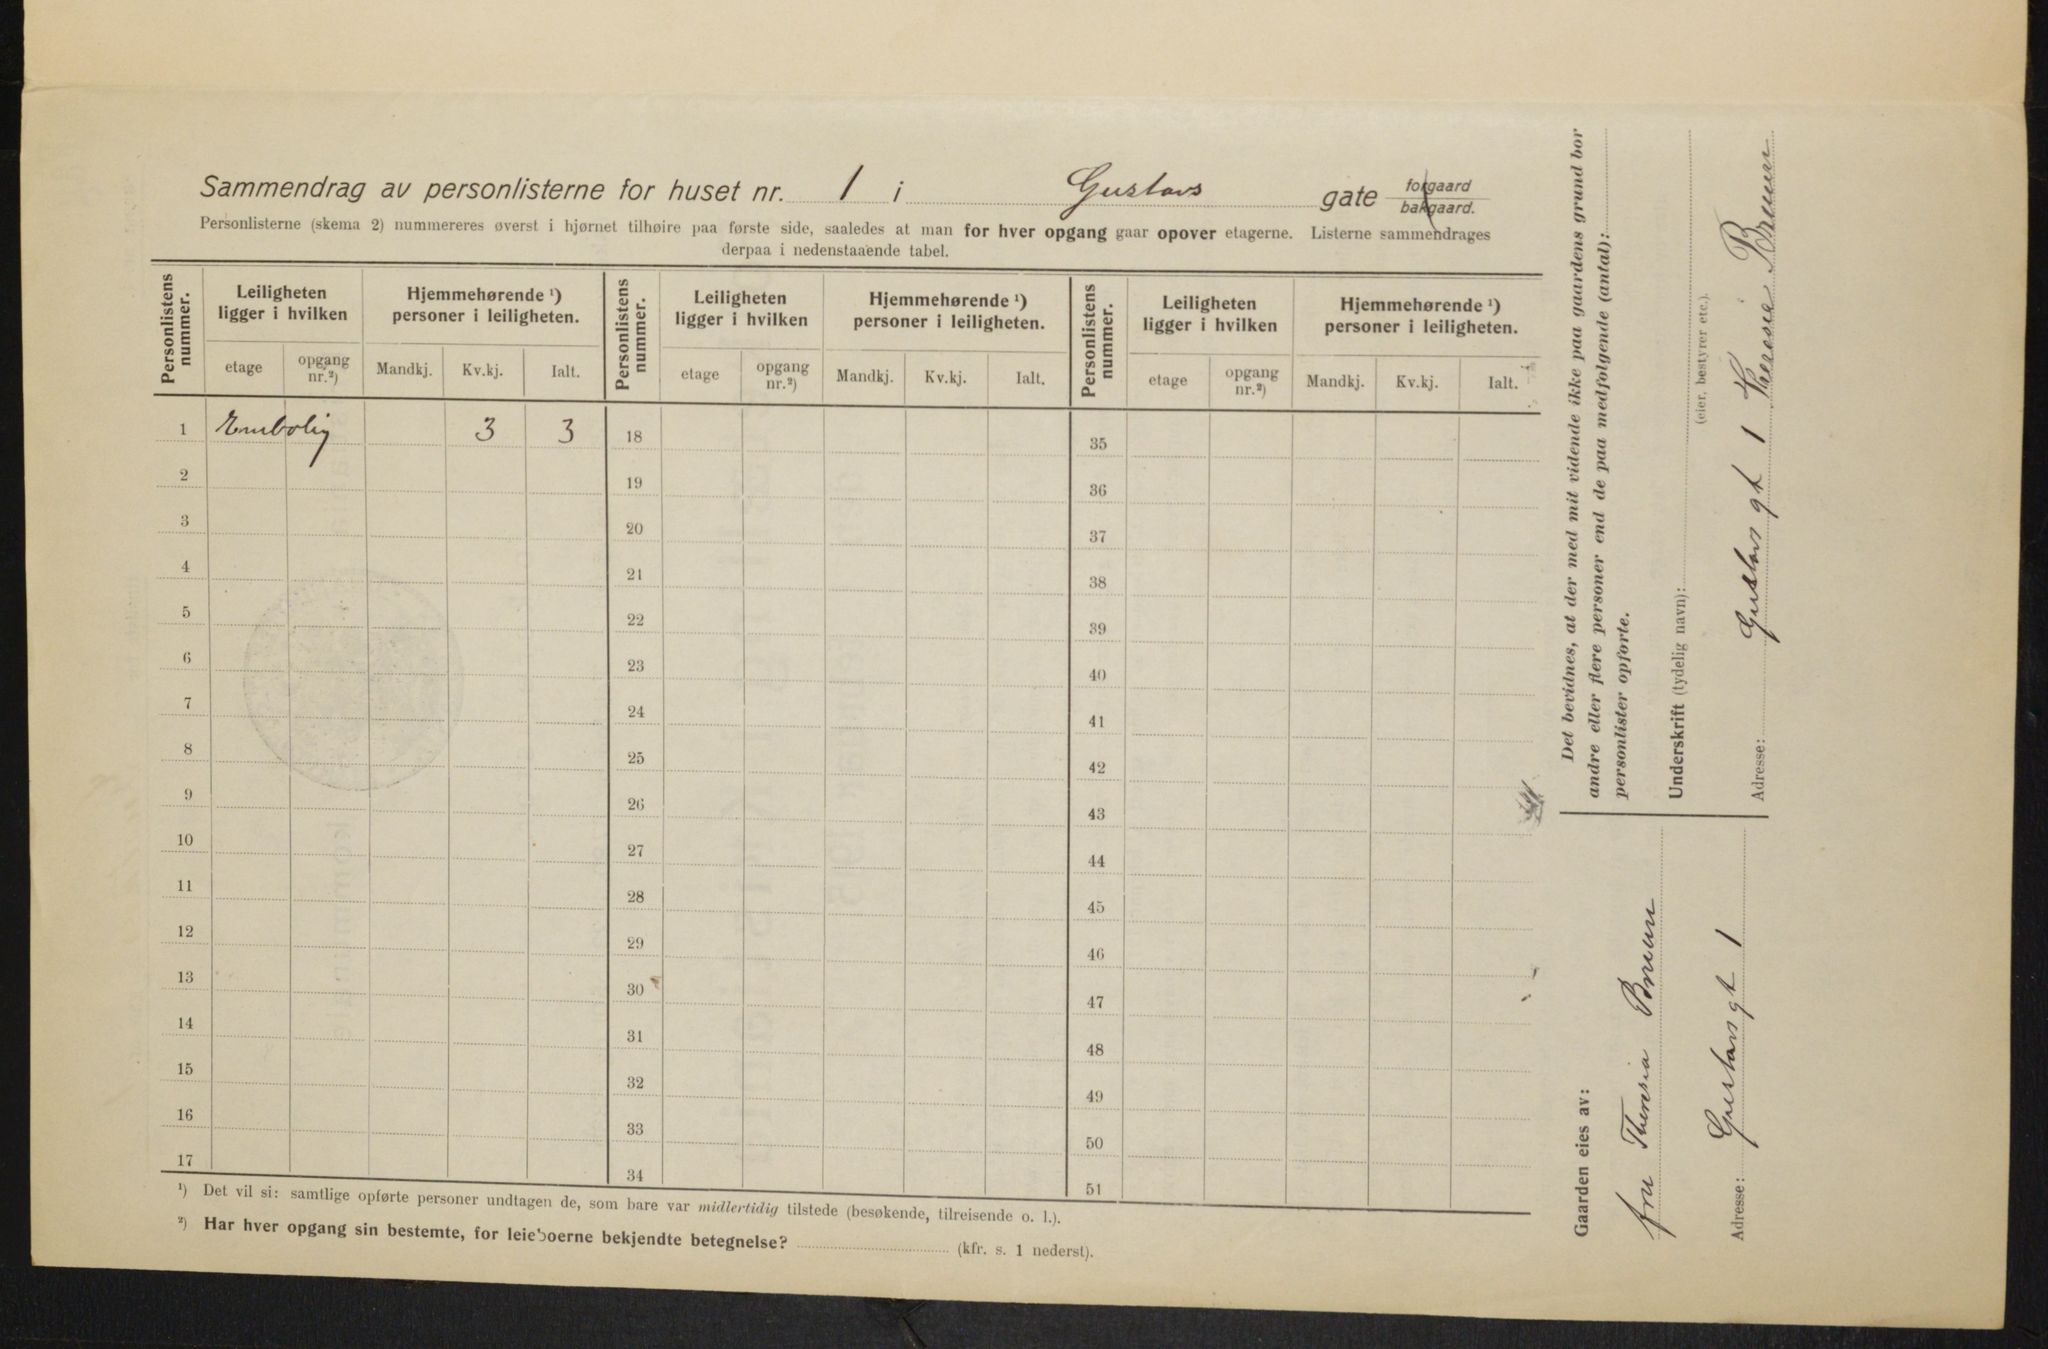 Sammendrag av personlisterne for huset nr. 1 i Gustavs gate forgaard bakgaard.
Personlisterne (skema 2) nummereres øverst i hjørnet tilhøire paa første side, saaledes at man for hver opgang gaar opover etagerne. Listerne sammendrages
derpaa i nedenstaaende tabel.
Personlistens nummer. Leiligheten ligger i hvilken Hjemmehørende ¹) personer i leiligheten. Personlistens nummer. Leiligheten ligger i hvilken Hjemmehørende ¹) personer i leiligheten. Personlistens nummer. Leiligheten ligger i hvilken Hjemmehørende ¹) personer i leiligheten.
etage opgang nr.²) Mandkj. Kv.kj. Ialt. etage opgang nr.²) Mandkj. Kv.kj. Ialt. etage opgang nr.²) Mandkj. Kv.kj. Ialt.
1 Enebolig 3 3 18 35
2 19 36
3 20 37
4 21 38
5 22 39
6 23 40
7 24 41
8 25 42
9 26 43
10 27 44
11 28 45
12 29 46
13 30 47
14 31 48
15 32 49
16 33 50
17 34 51
¹) Det vil si: samtlige opførte personer undtagen de, som bare var midlertidig tilstede (besøkende, tilreisende o. l.).
²) Har hver opgang sin bestemte, for leieboerne bekjendte betegnelse? (kfr. s. 1 nederst).
Det bevidnes, at der med mit vidende ikke paa gaardens grund bor
andre eller flere personer end de paa medfølgende (antal):
personlister opførte.
Underskrift (tydelig navn):
(eier, bestyrer etc.).
Theresia Bruun
Adresse: Gustavs gt 1
Gaarden eies av:
fru Theresia Bruun
Adresse: Gustavs gt 1